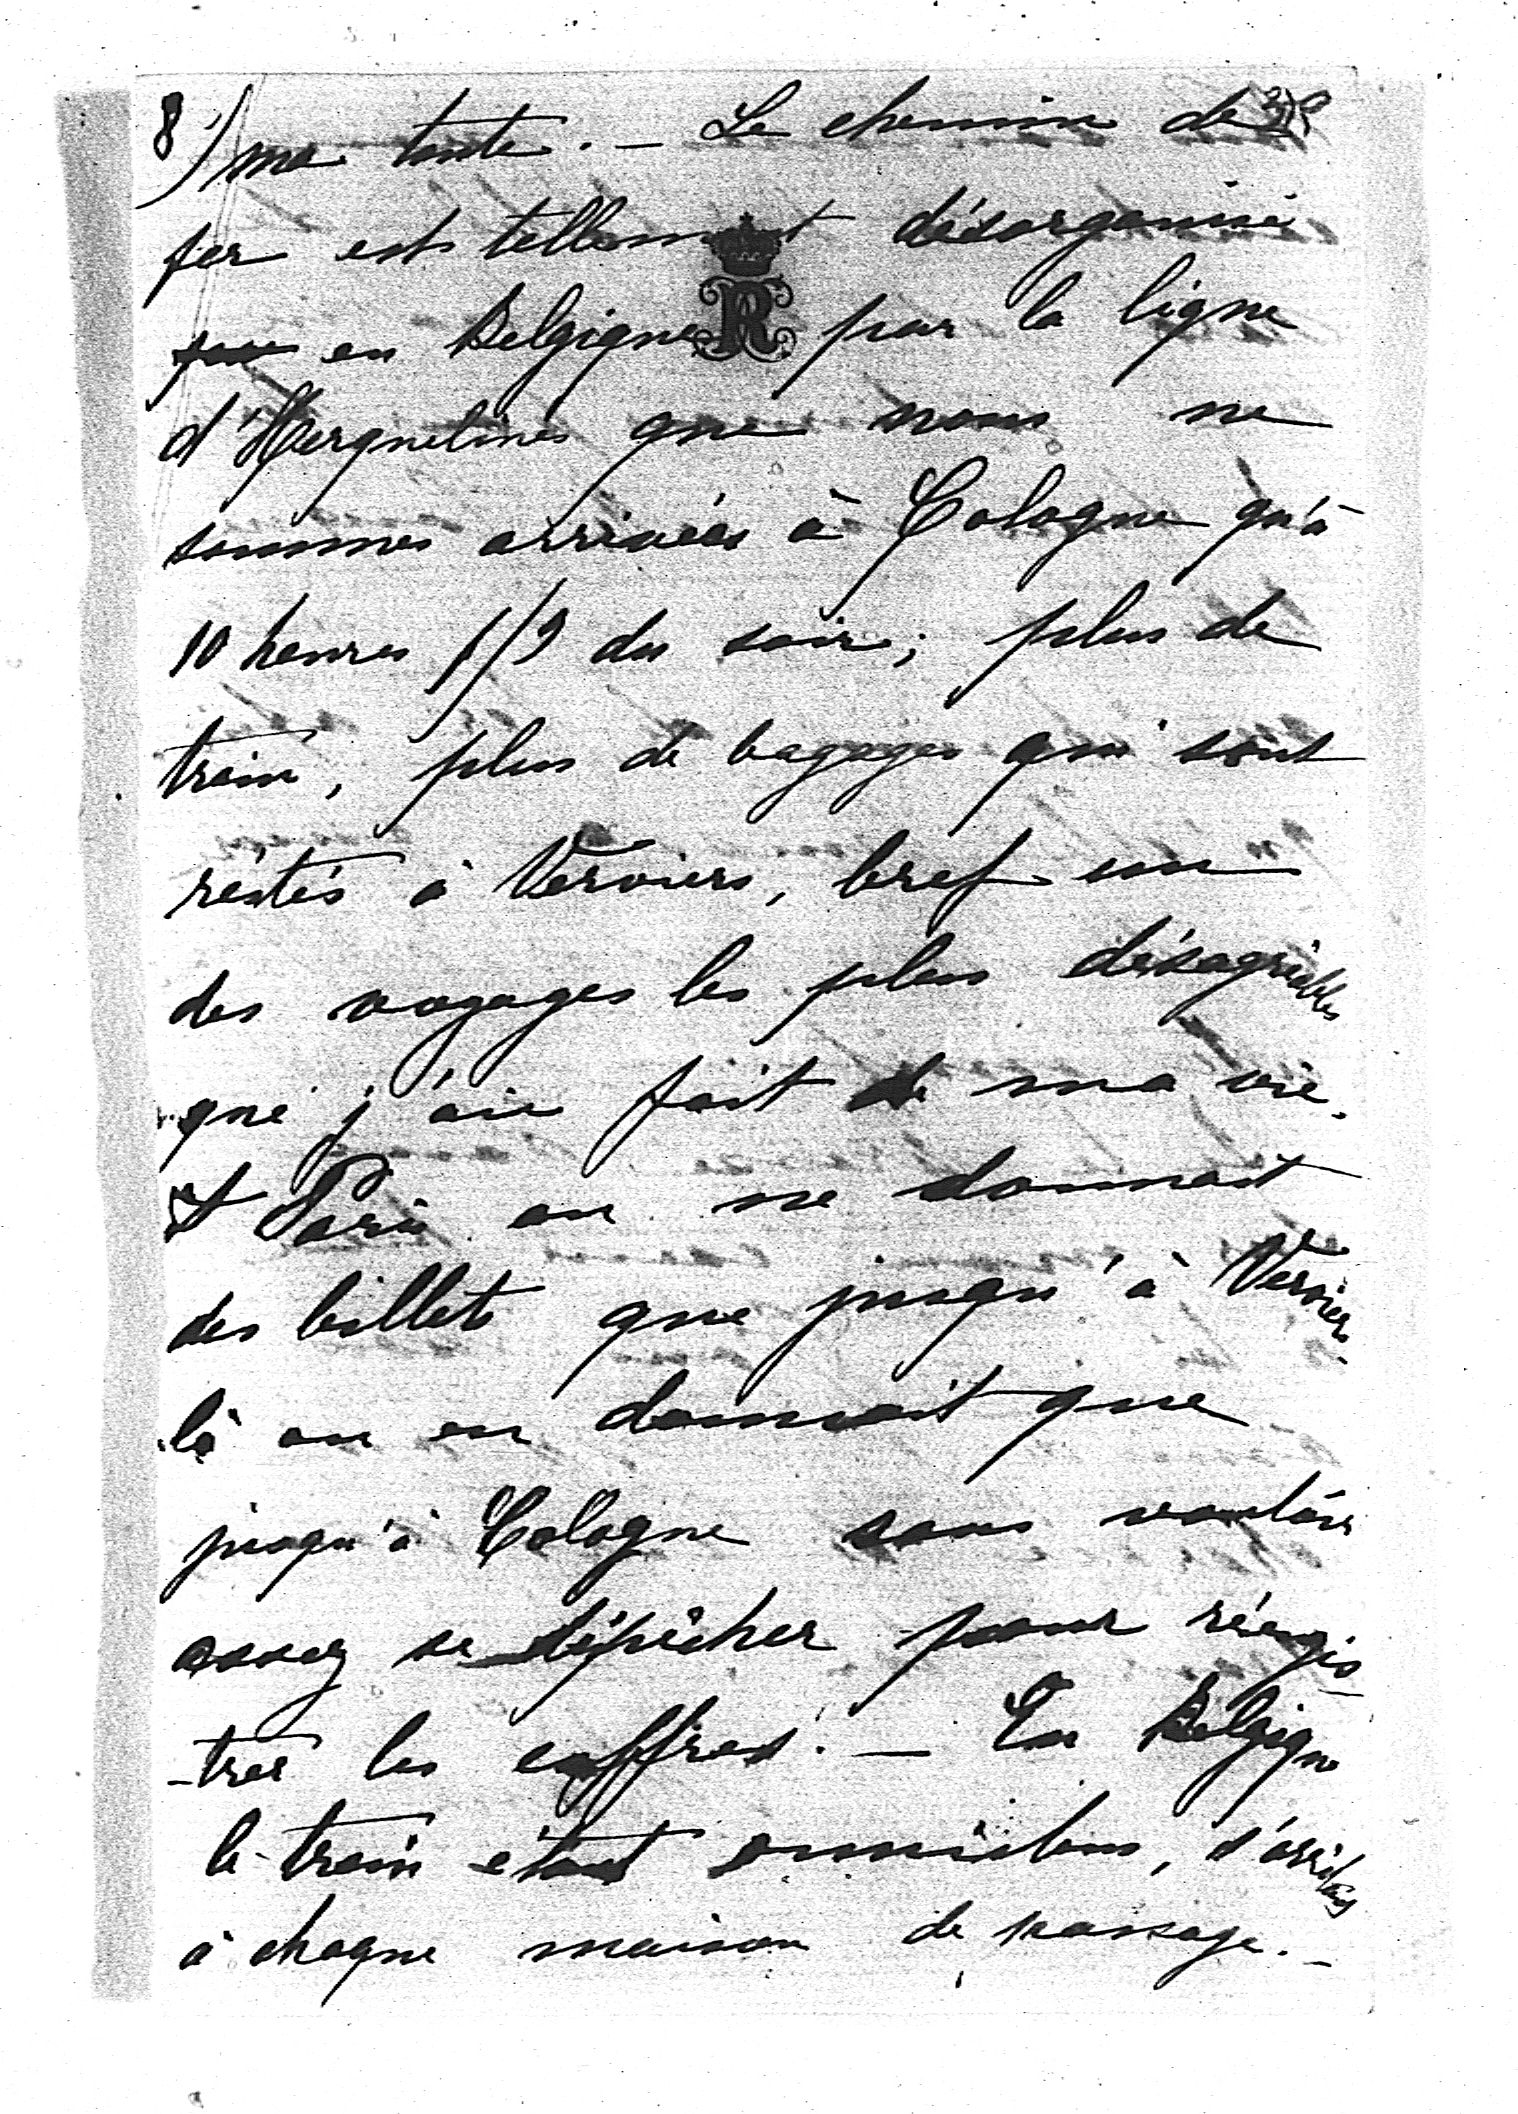 8) ma tante. — Le chemin de
fer est tellement désorganisé
en Belgique par la ligne
d'Herquelines que nous ne
sommes arrivées à Cologne qu'à
10 heures 1/2 du soir; plus de
train, plus de bagages qui sont
réstés à Verviers, bref un
des voyages les plus désagréables
que j'aie fait de ma vie.
A Paris on ne donnait
des billets que jusqu'à Verviers.
là on en donnait que
jusqu'à Cologne sans vouloir
assez se dépêcher pour réengis-
-trer les coffres. — En Belgique
le train étant omnibus, s'arrêtait
à chaque maison de passage. —
R